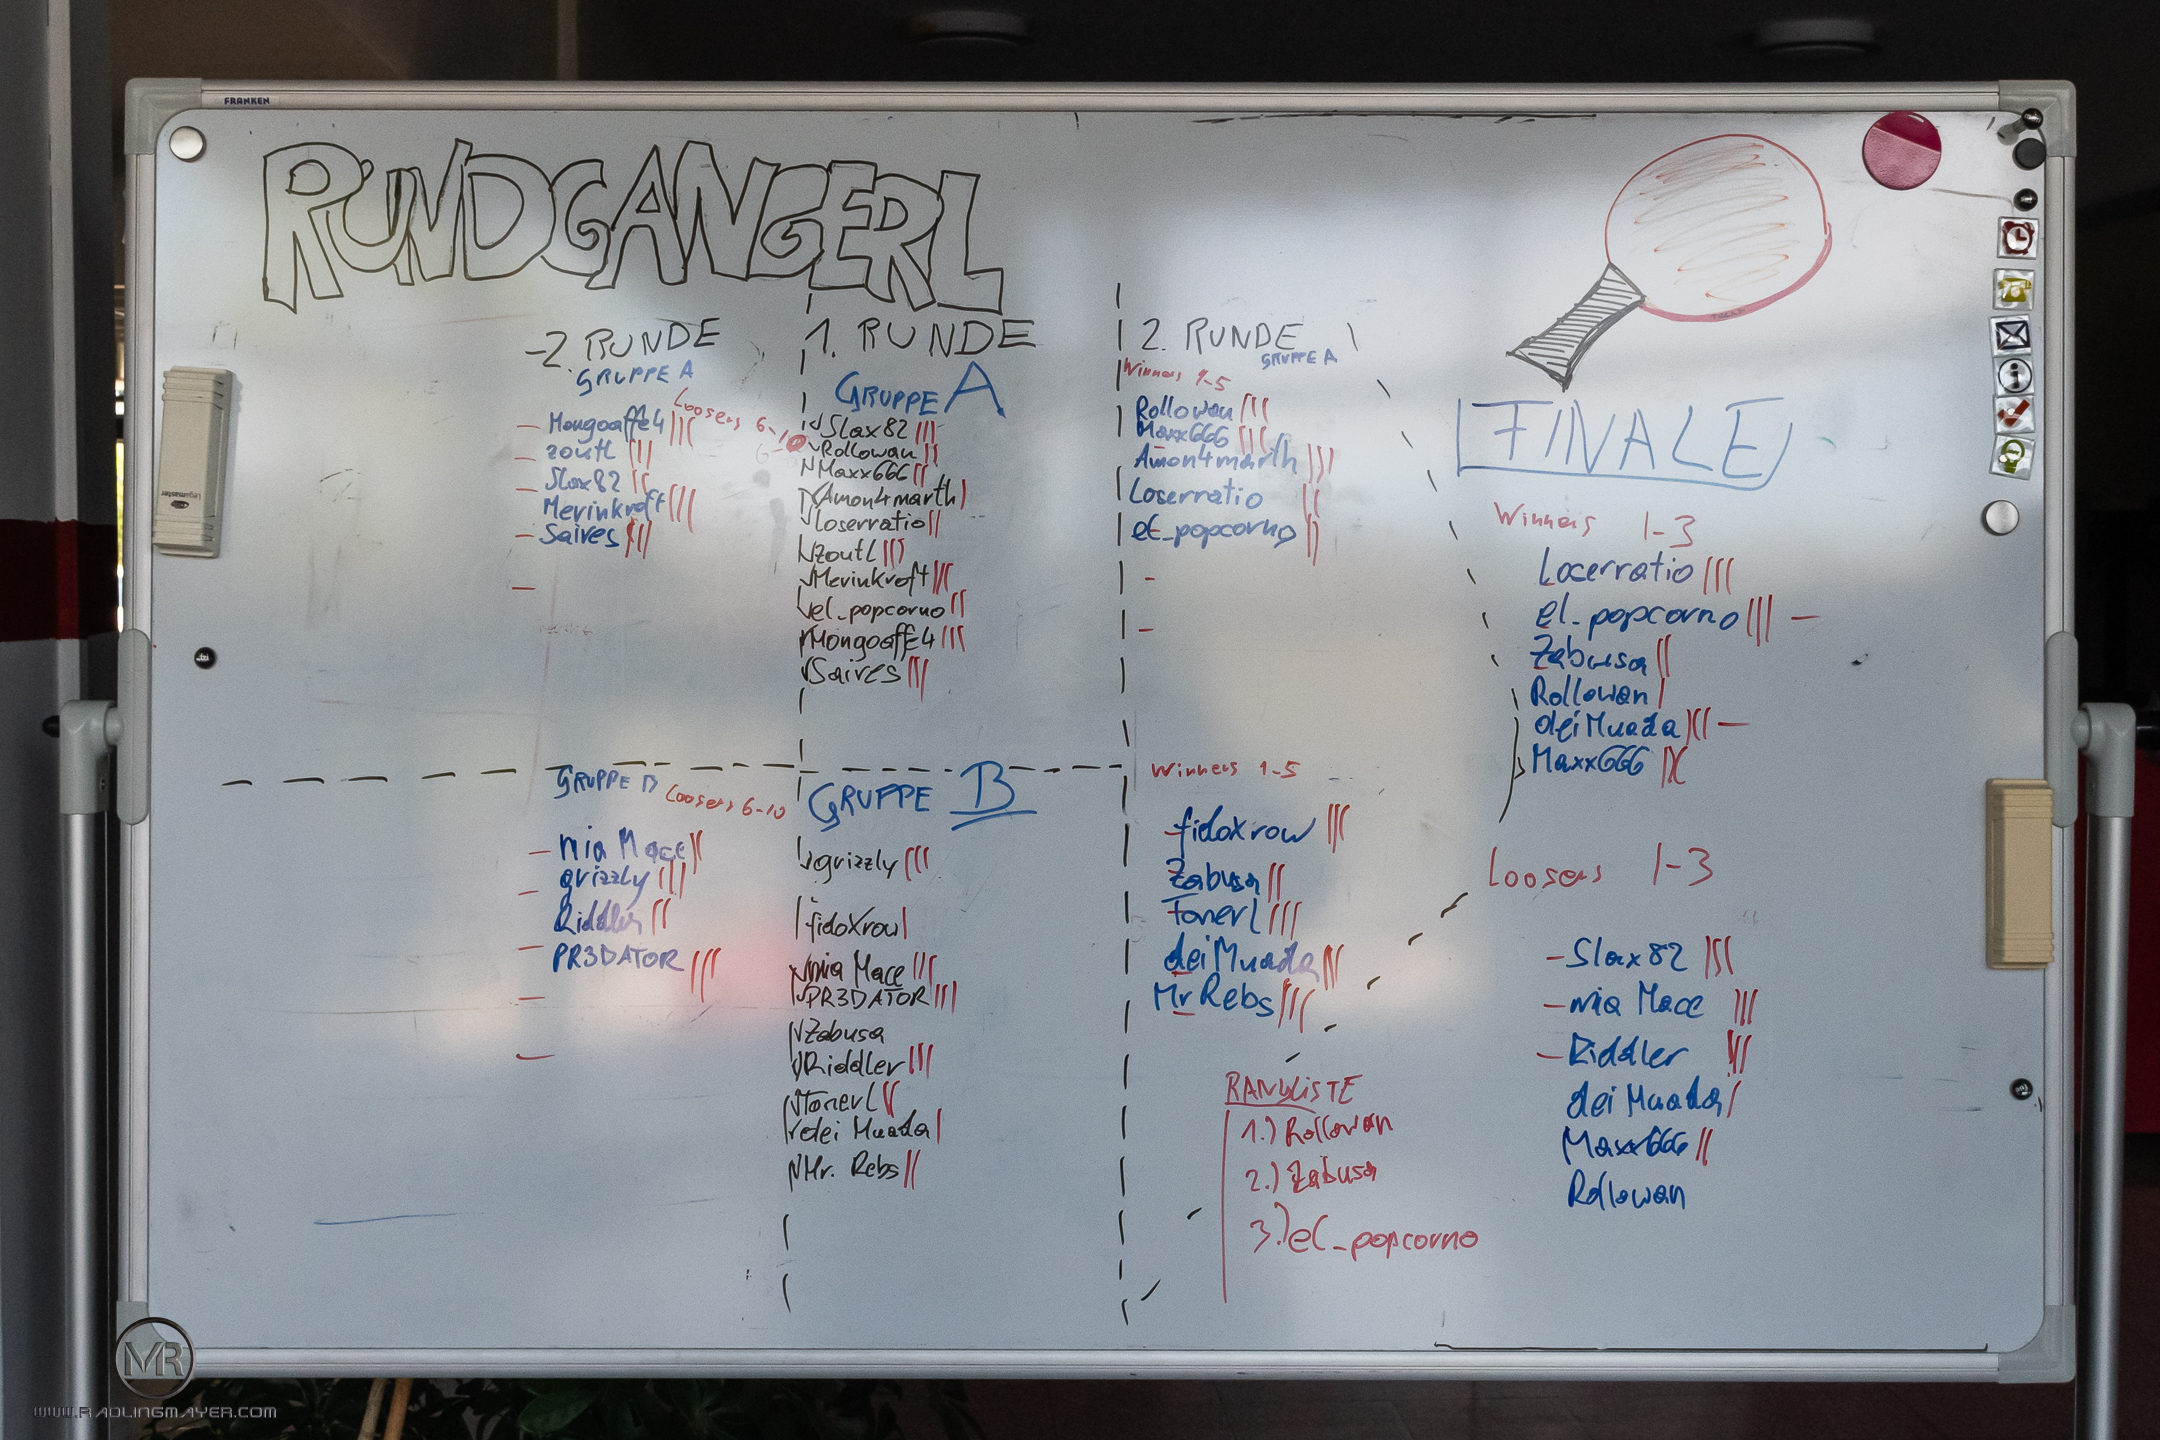 FRANKEN
RUNDGANGERL
-2. RUNDE
GRUPPE A
Loosers 6-10
Mongoaffe4 |||
zoutl |||
Slax82 ||
Merinkroft |||
Saires |||
1. RUNDE
GRUPPE A
Slax82 |||
Rollowan ||
Maxx666 ||
Amon4marth |
loserratio ||
zoutl |||
Merinkroft |||
el_popcorno ||
Mongoaffe4 |||
Saires |||
2. RUNDE
GRUPPE A
Winners 1-5
Rollowan |||
Maxx666 |||
Amon4marth |||
Loserratio ||
el_popcorno ||
FINALE
Winners 1-3
Locerratio |||
el_popcorno ||| -
Zabusa ||
Rollowan |
deiMuada ||| -
Maxx666 |||
GRUPPE B
Loosers 6-10
mia Mace ||
grizzly |||
Riddler ||
PR3DATOR |||
GRUPPE B
grizzly |||
fidoXrow |
mia Mace |||
PR3DATOR |||
Zabusa
Riddler |||
Tonerl ||
dei Muada |
Mr. Rebs ||
Winners 1-5
fidoxrow |||
Zabusa ||
Tonerl |||
deiMuada ||
Mr Rebs |||
Loosers 1-3
-Slax82 |||
-mia Mace |||
-Riddler |||
dei Muada |
Maxx666 ||
Rollowan
RANGLISTE
1.) Rollowan
2.) Zabusa
3.) el_popcorno
Legamaster
MR
WWW.RADLINGMAYER.COM